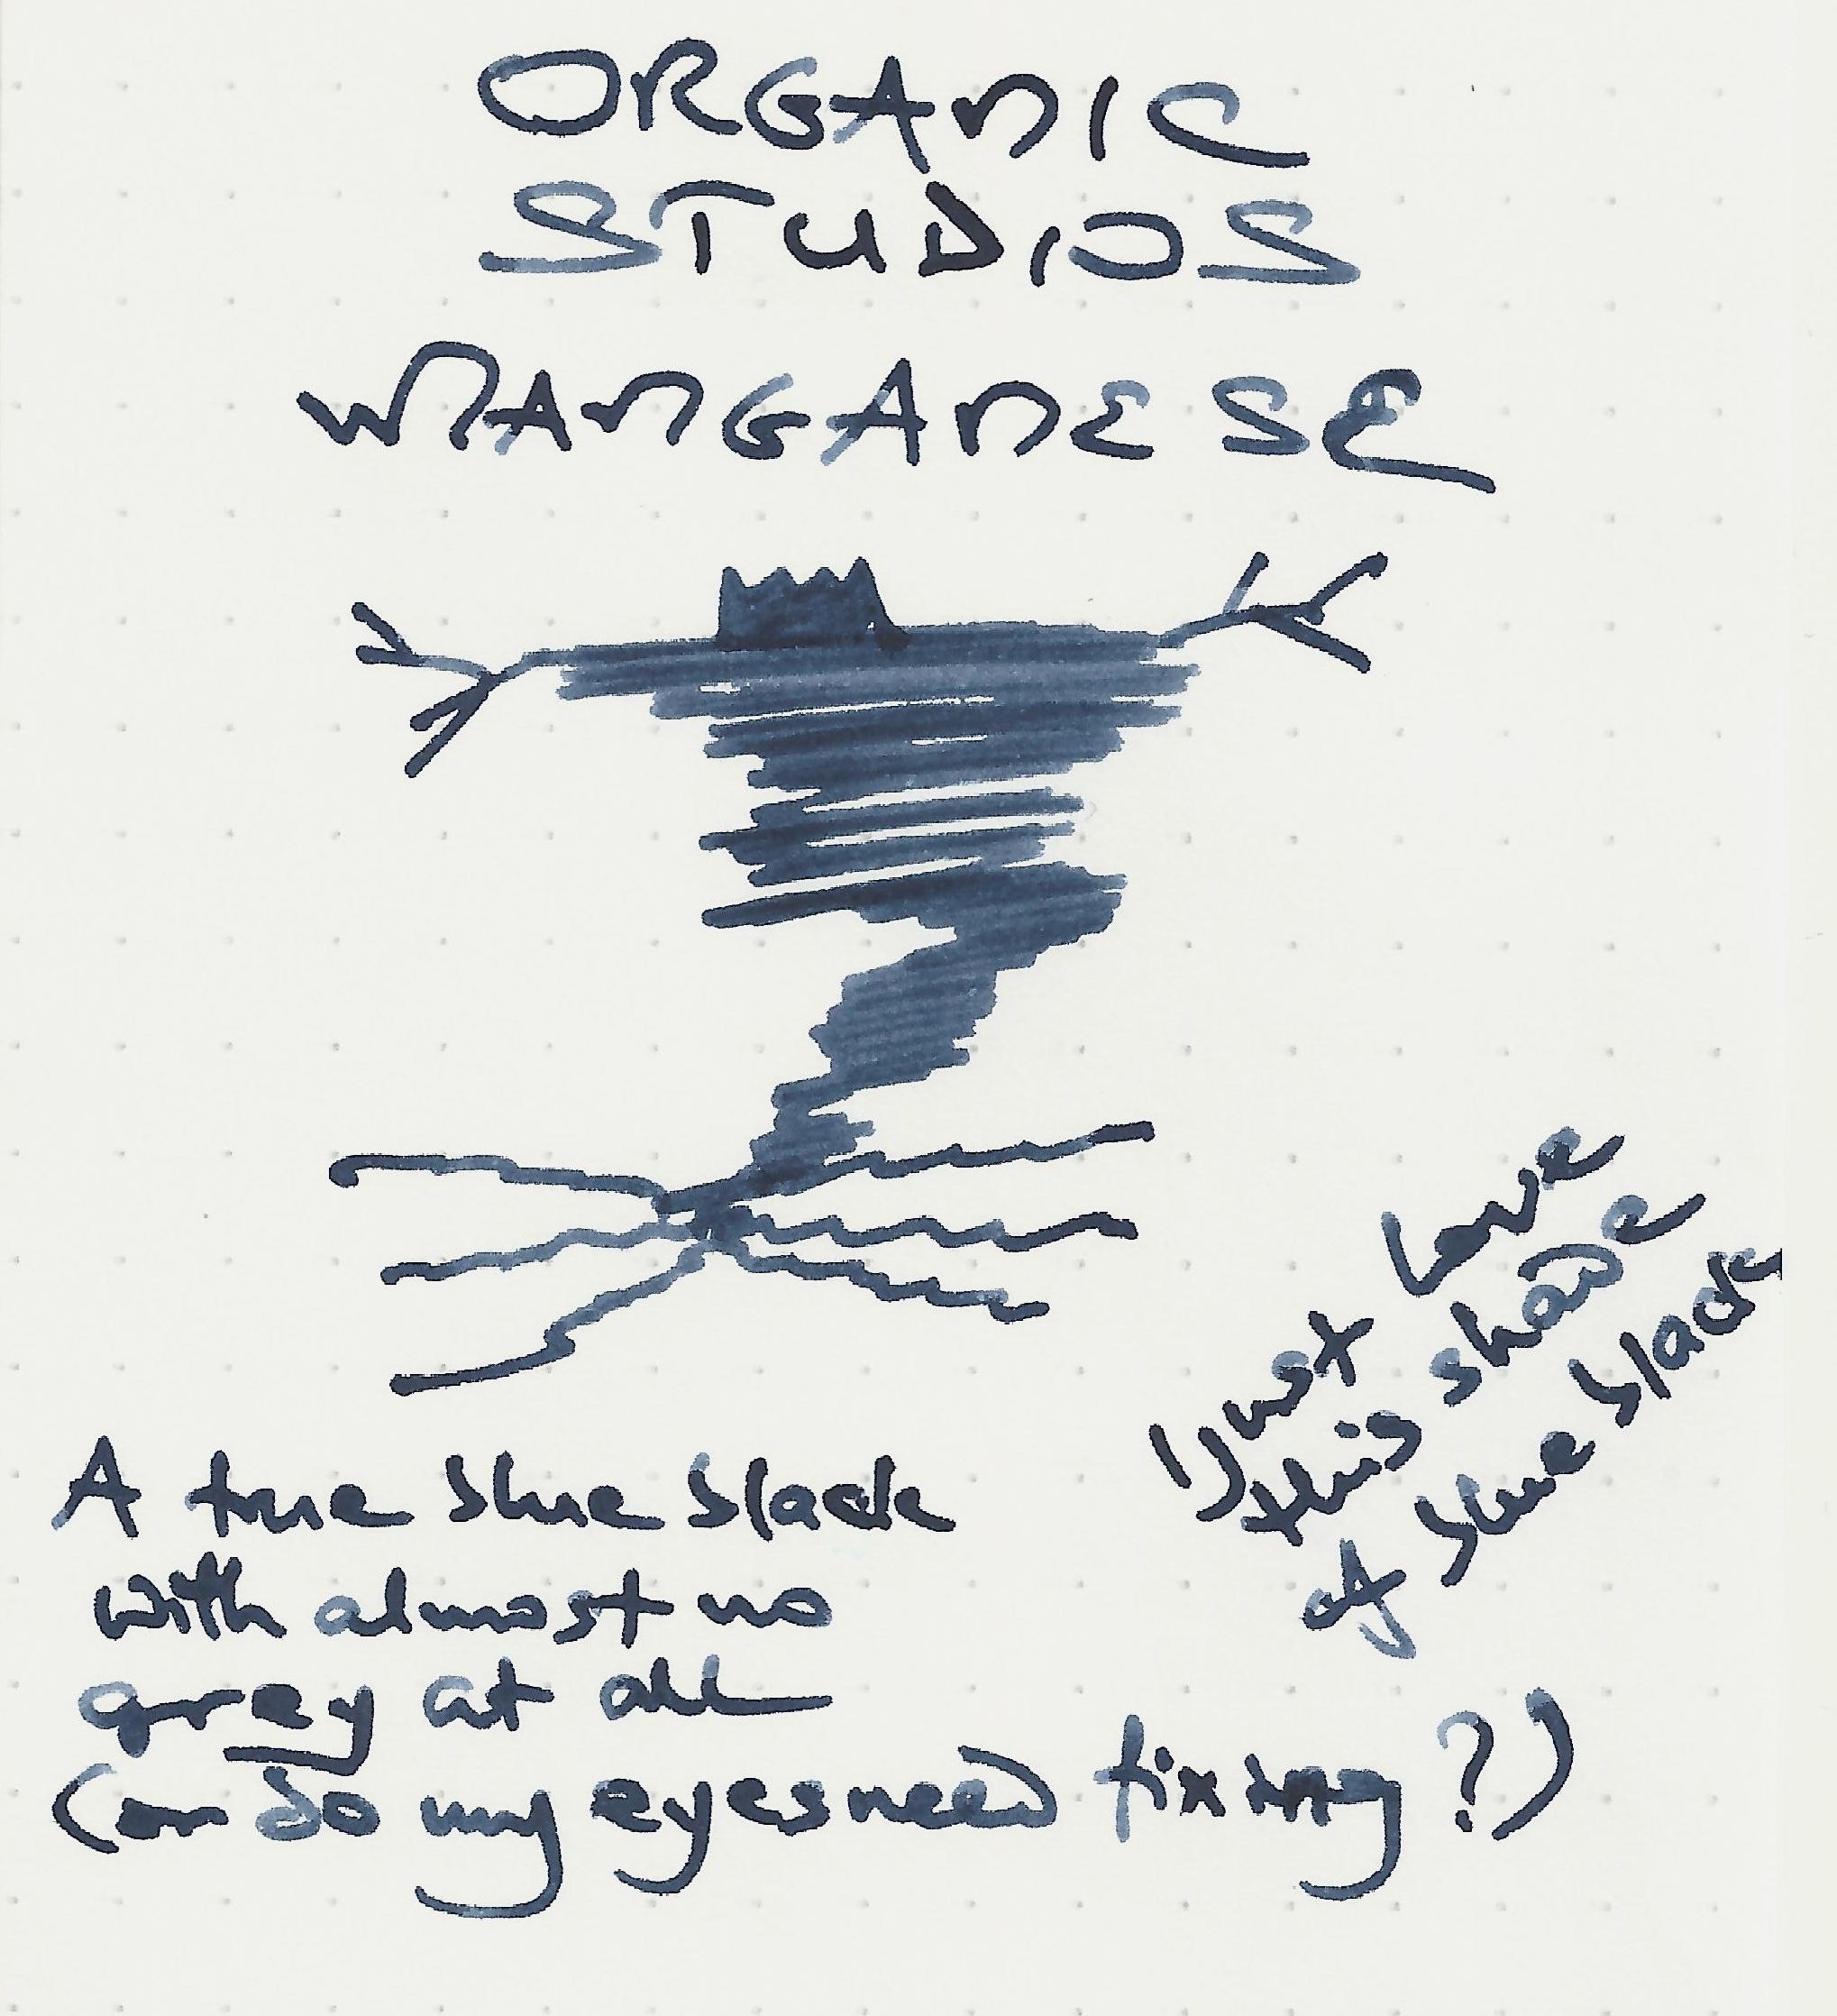 ORGANIC
STUDIOS
MANGANESE
I just love
this shade
of blue black
A true blue black
with almost no
grey at all
(or do my eyes need fixing?)